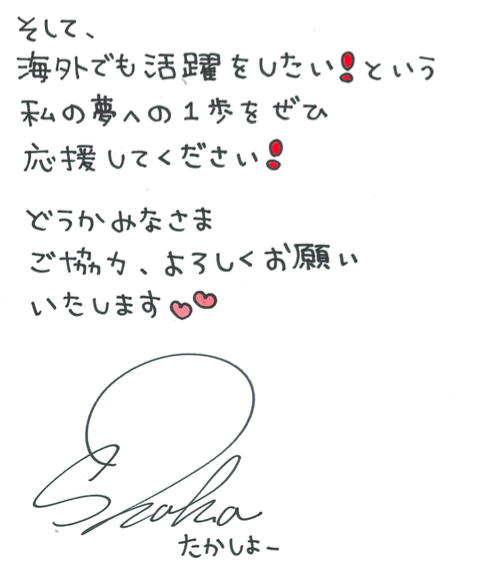 そして、
海外でも活躍をしたい❗という
私の夢への1歩をぜひ
応援してください❗
どうかみなさま
ご協力、よろしくお願い
いたします
Shoko
たかしょー